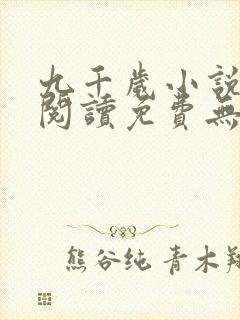 九千歲小說
閱讀免費無
熊谷纯 青木翔